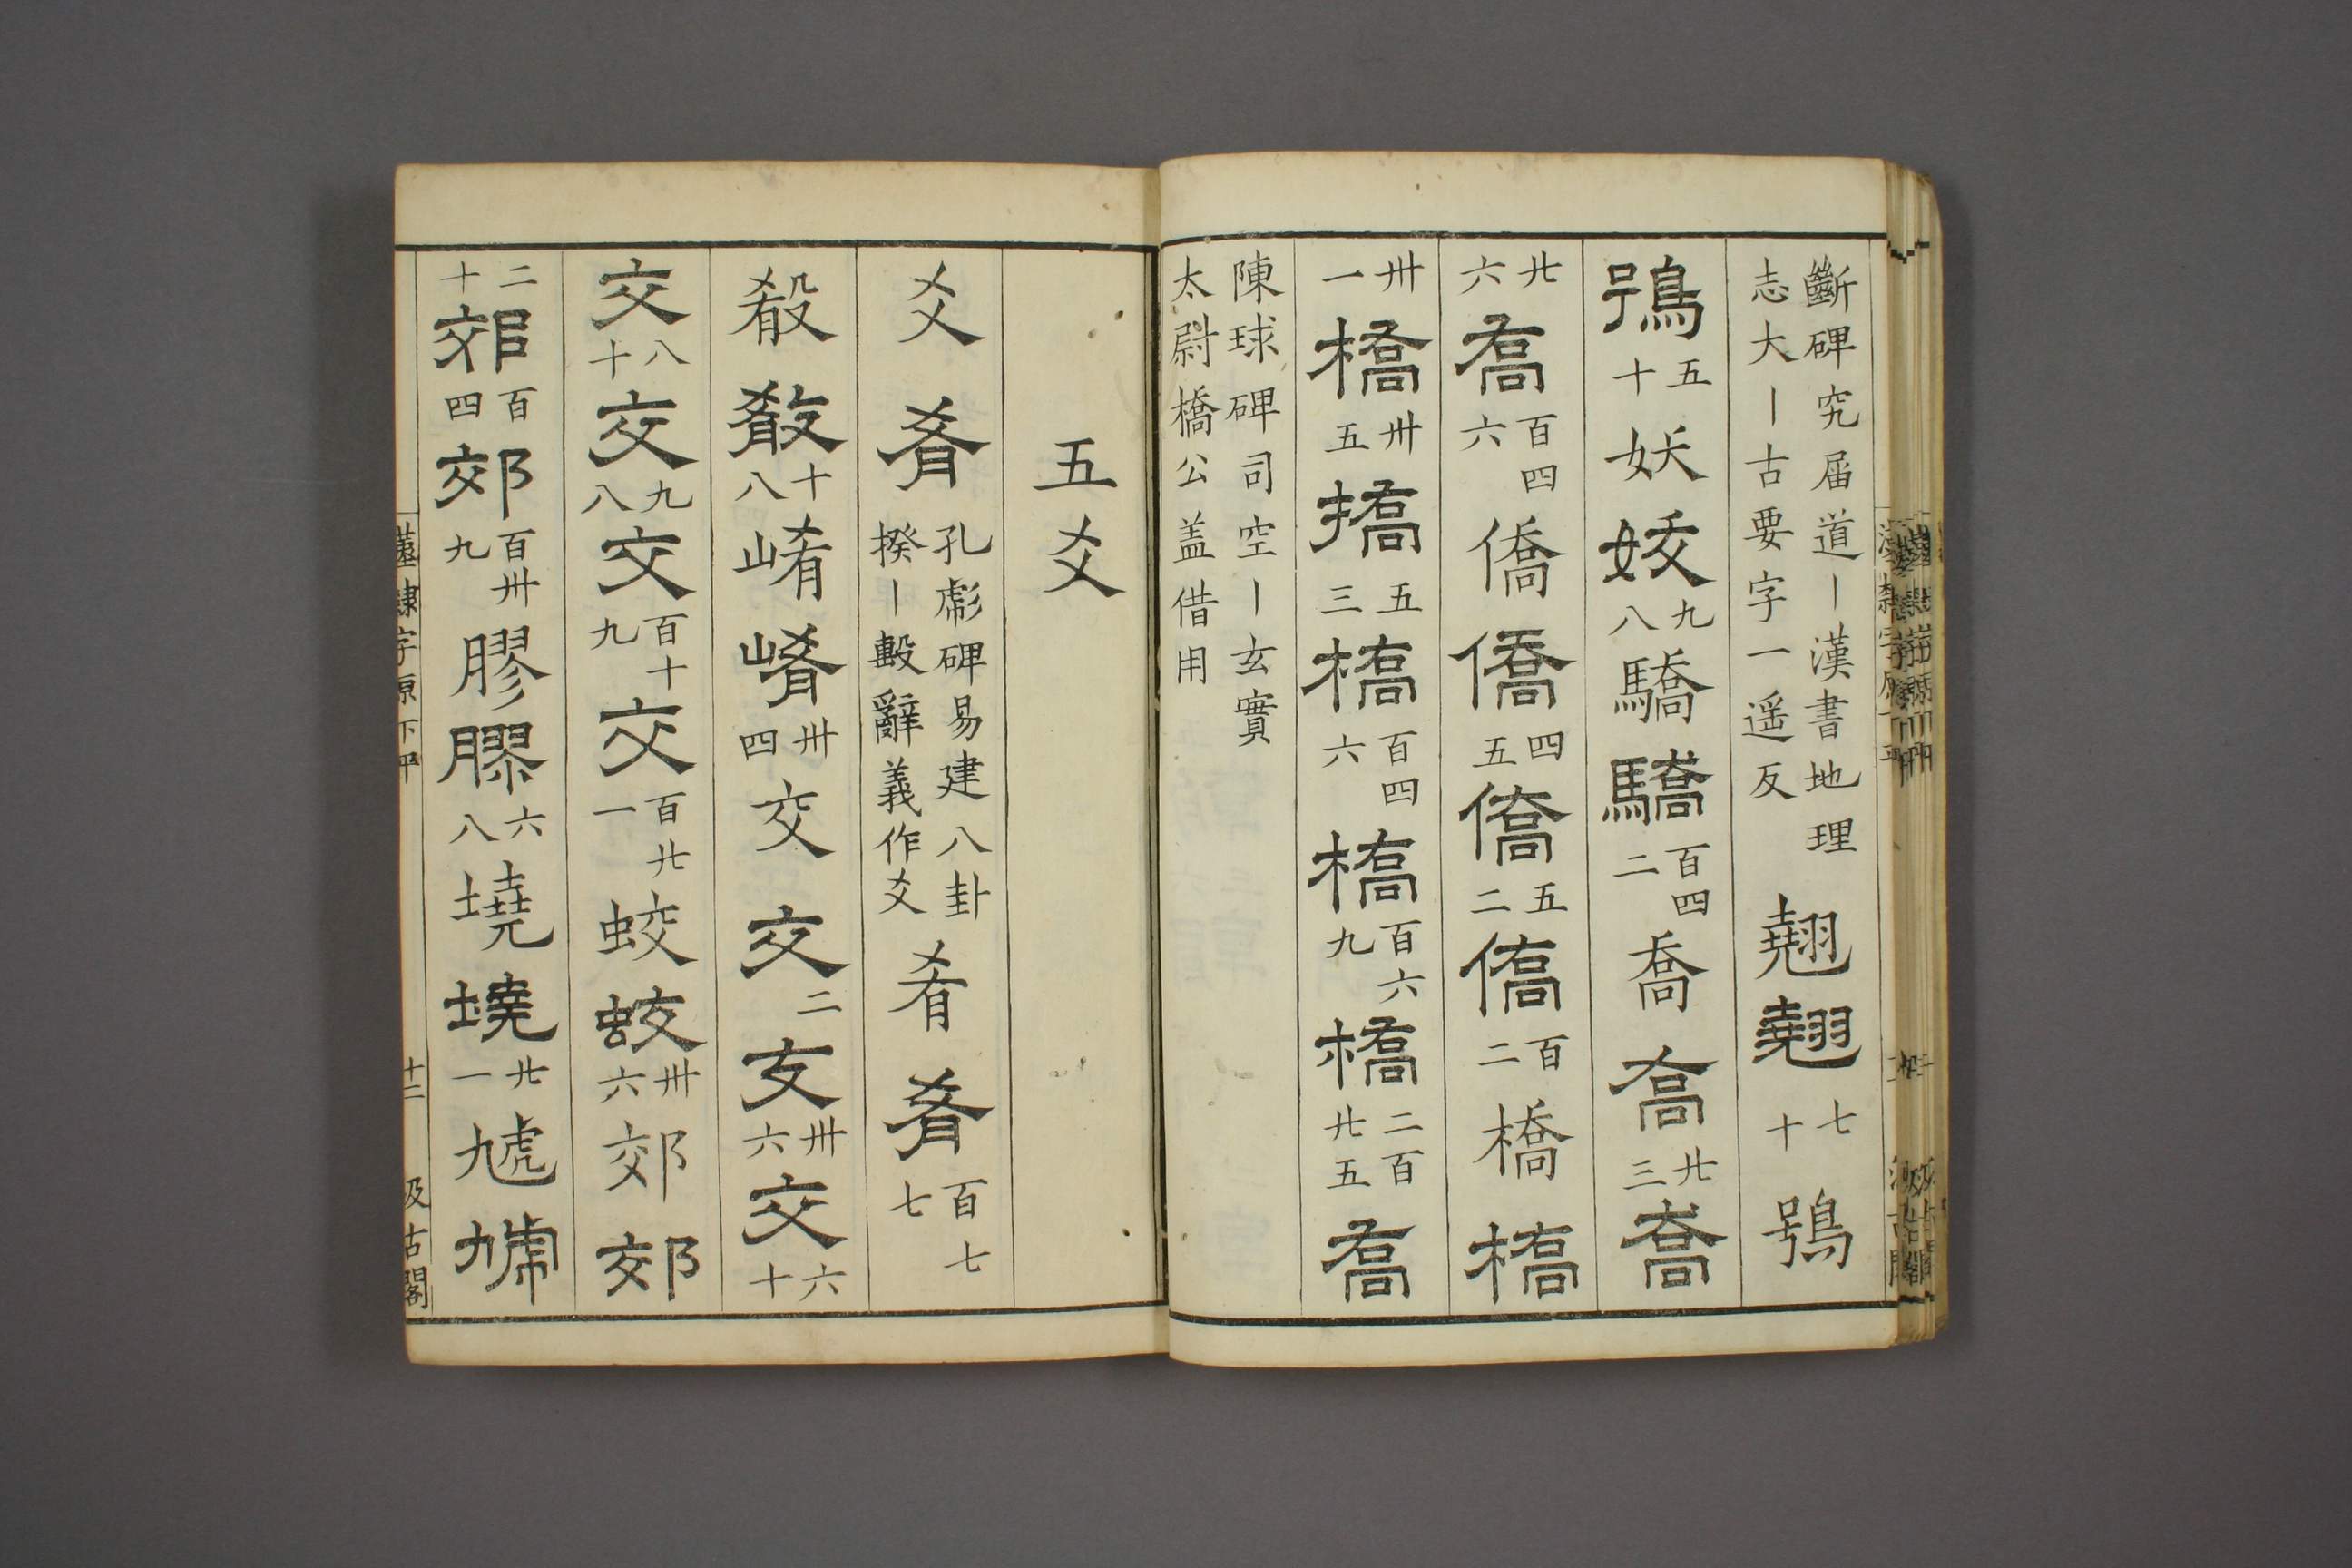 斷碑究屆道丨漢書地理
志大丨古要字一遥反
翹翹
七十
鴞
鴞
五十
妖姣
九八
驕驕
百四二
喬喬
廿三
喬
廿六
喬
百四六
僑僑
四五
僑
五二
僑
百二
橋橋
卅一
橋
卅五
撟
五三
橋
百四六
橋
百六九
橋
二百廿五
喬
陳球碑司空丨玄實
太尉橋公盖借用
五爻
爻肴
孔彪碑易建八卦
揆丨毄辭義作爻
肴肴
百七七
殽殽
十八
崤崤
卅四
交交
二
交
卅六
交
六十
交
八十
交
九八
交
百十九
交
百廿一
蛟蛟
卅六
郊郊
二十
郊
百四
郊
百卅九
膠膠
六八
墝墝
廿一
虓虓
漢隸字原下平
十二
汲古閣